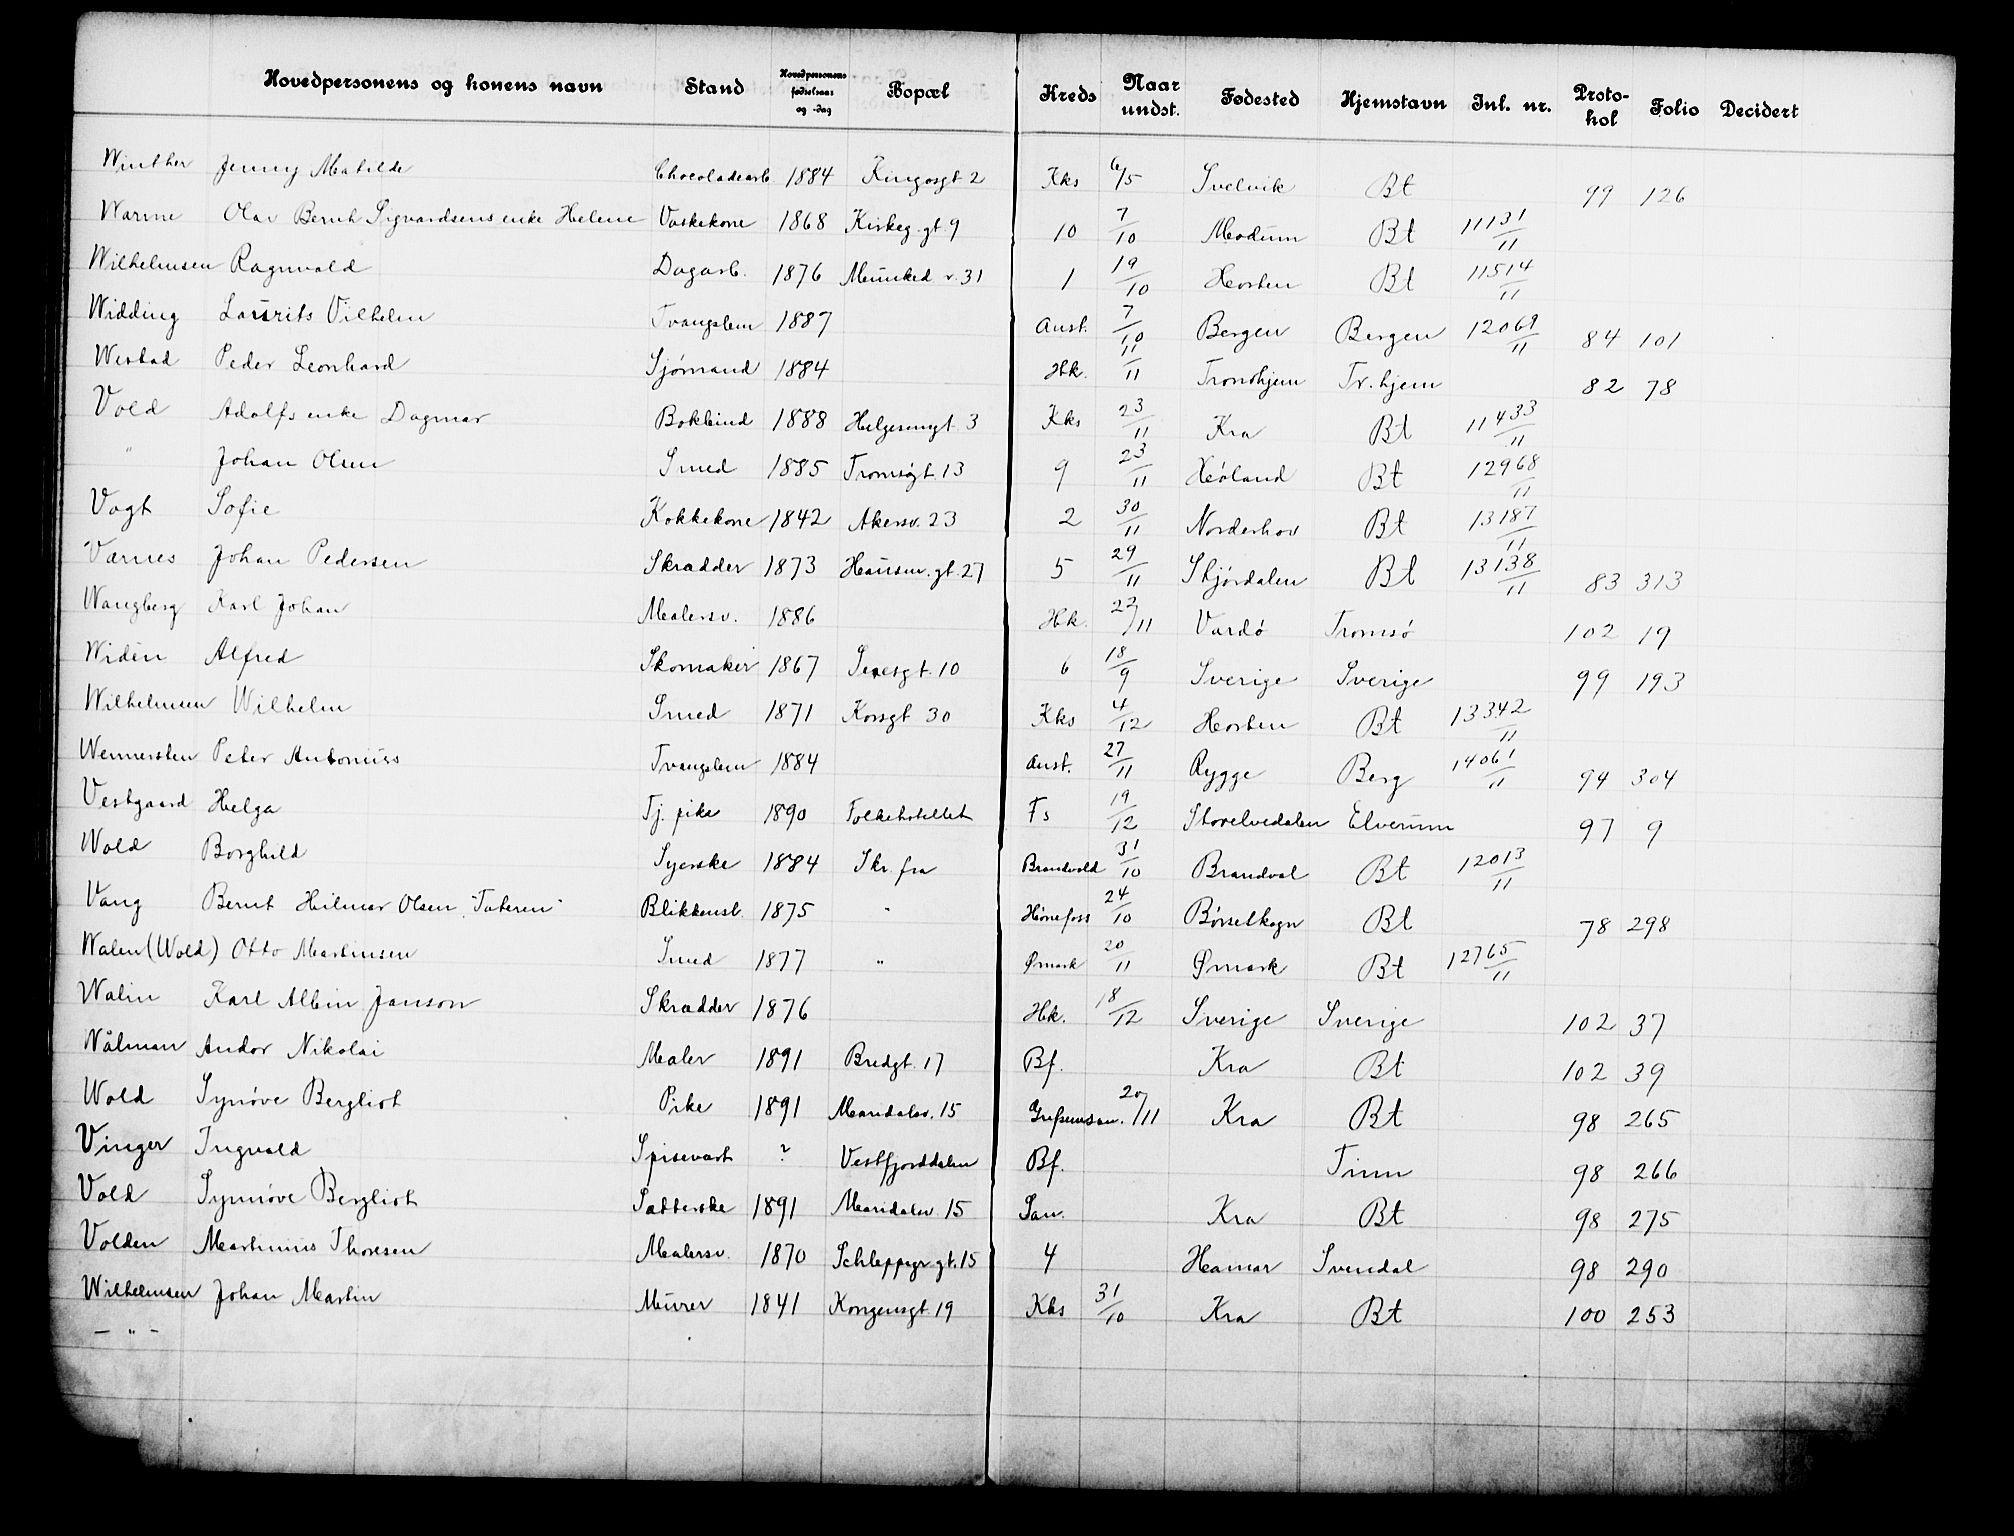 Hovedpersonens og konens navn Stand Hovedpersonens fødselsaar og -dag Bopæl Kreds Naar undst. Fødested Hjemstavn Inf. nr. Protokol Folio Decidert
Winther Jenny Matilde Chocoladearb. 1884 Kingosgt 2 Kks 6/5 Svelvik Bt 99 126
Warme Olav Bernh Sigvardsens enke Helene Vaskekone 1868 Kirkeg. gt 9 10 7/10 Modum Bt 11131/11
Wilhelmsen Ragnvald Dagarb. 1876 Munked v. 31 1 19/10 Horten Bt 11514/11
Widding Laurits Vilhelm Tvangslem 1887 Anst. 7/10 Bergen Bergen 12069/11 84 101
Westad Peder Leonhard Sjømand 1884 Hk. 11/11 Trondhjem Tr. hjem 82 78
Vold Adolfs enke Dagmar Bokbind 1888 Helgesensgt 3 Kks 23/11 Kra Bt 11433/11
" Johan Olsen Smed 1885 Tromsøgt. 13 9 23/11 Høland Bt 12968/11
Vogt Sofie Kokkekone 1842 Akersv. 23 2 30/11 Norderhov Bt 13187/11
Værnes Johan Pedersen Skrædder 1873 Hausm. gt. 27 5 29/11 Stjørdalen Bt 13138/11 83 313
Wangberg Karl Johan Malersv. 1886 Hk. 22/11 Vardø Tromsø 102 19
Widén Alfred Skomaker 1867 10 6 18/9 Sverige Sverige 99 193
Wilhelmsen Wilhelm Smed 1871 Korsgt 30 Kks 4/12 Horten Bt 13342/11
Wennersten Peter Antonius Tvangslem 1884 Anst. 27/11 Rygge Berg 14061/11 94 304
Vestgaard Helga Tj. pike 1890 Folkehotellet Fs 19/12 Storelvedalen Elverum 97 9
Wold Borghild Syerske 1884 Skr. fra Brandvold 31/10 Brandval Bt 12013/11
Vang Bernt Hilmar Olsen "Tateren" Blikkensl. 1875 " Hønefoss 24/10 Børselkogn Bt 78 298
Walen (Wold) Otto Martinsen Smed 1877 " Ømark 20/11 Ømark Bt 12765/11
Walin Karl Albin Janson Skrædder 1876 Hk. 18/12 Sverige Sverige 102 37
Wålman Andor Nikolai Maler 1891 Bredgt. 17 Bf. Kra Bt 102 39
Wold Synøve Bergliot Pike 1891 Maridalsv. 15 Grefsensan. 20/11 Kra Bt 98 265
Vinger Ingvald Spisevært ? Vestfjorddalen Bf. Tinn 98 266
Vold Synnøve Bergliot Sætterske 1891 Maridalsv. 15 San. Kra Bt 98 275
Volden Marthinus Thoresen Malersv. 1870 Schleppegr. gt. 15 4 Hamar Svendal 98 290
Wilhelmsen Johan Martin Murer 1841 Kongensgt. 19 Kks 31/10 Kra Bt 100 253
— " —